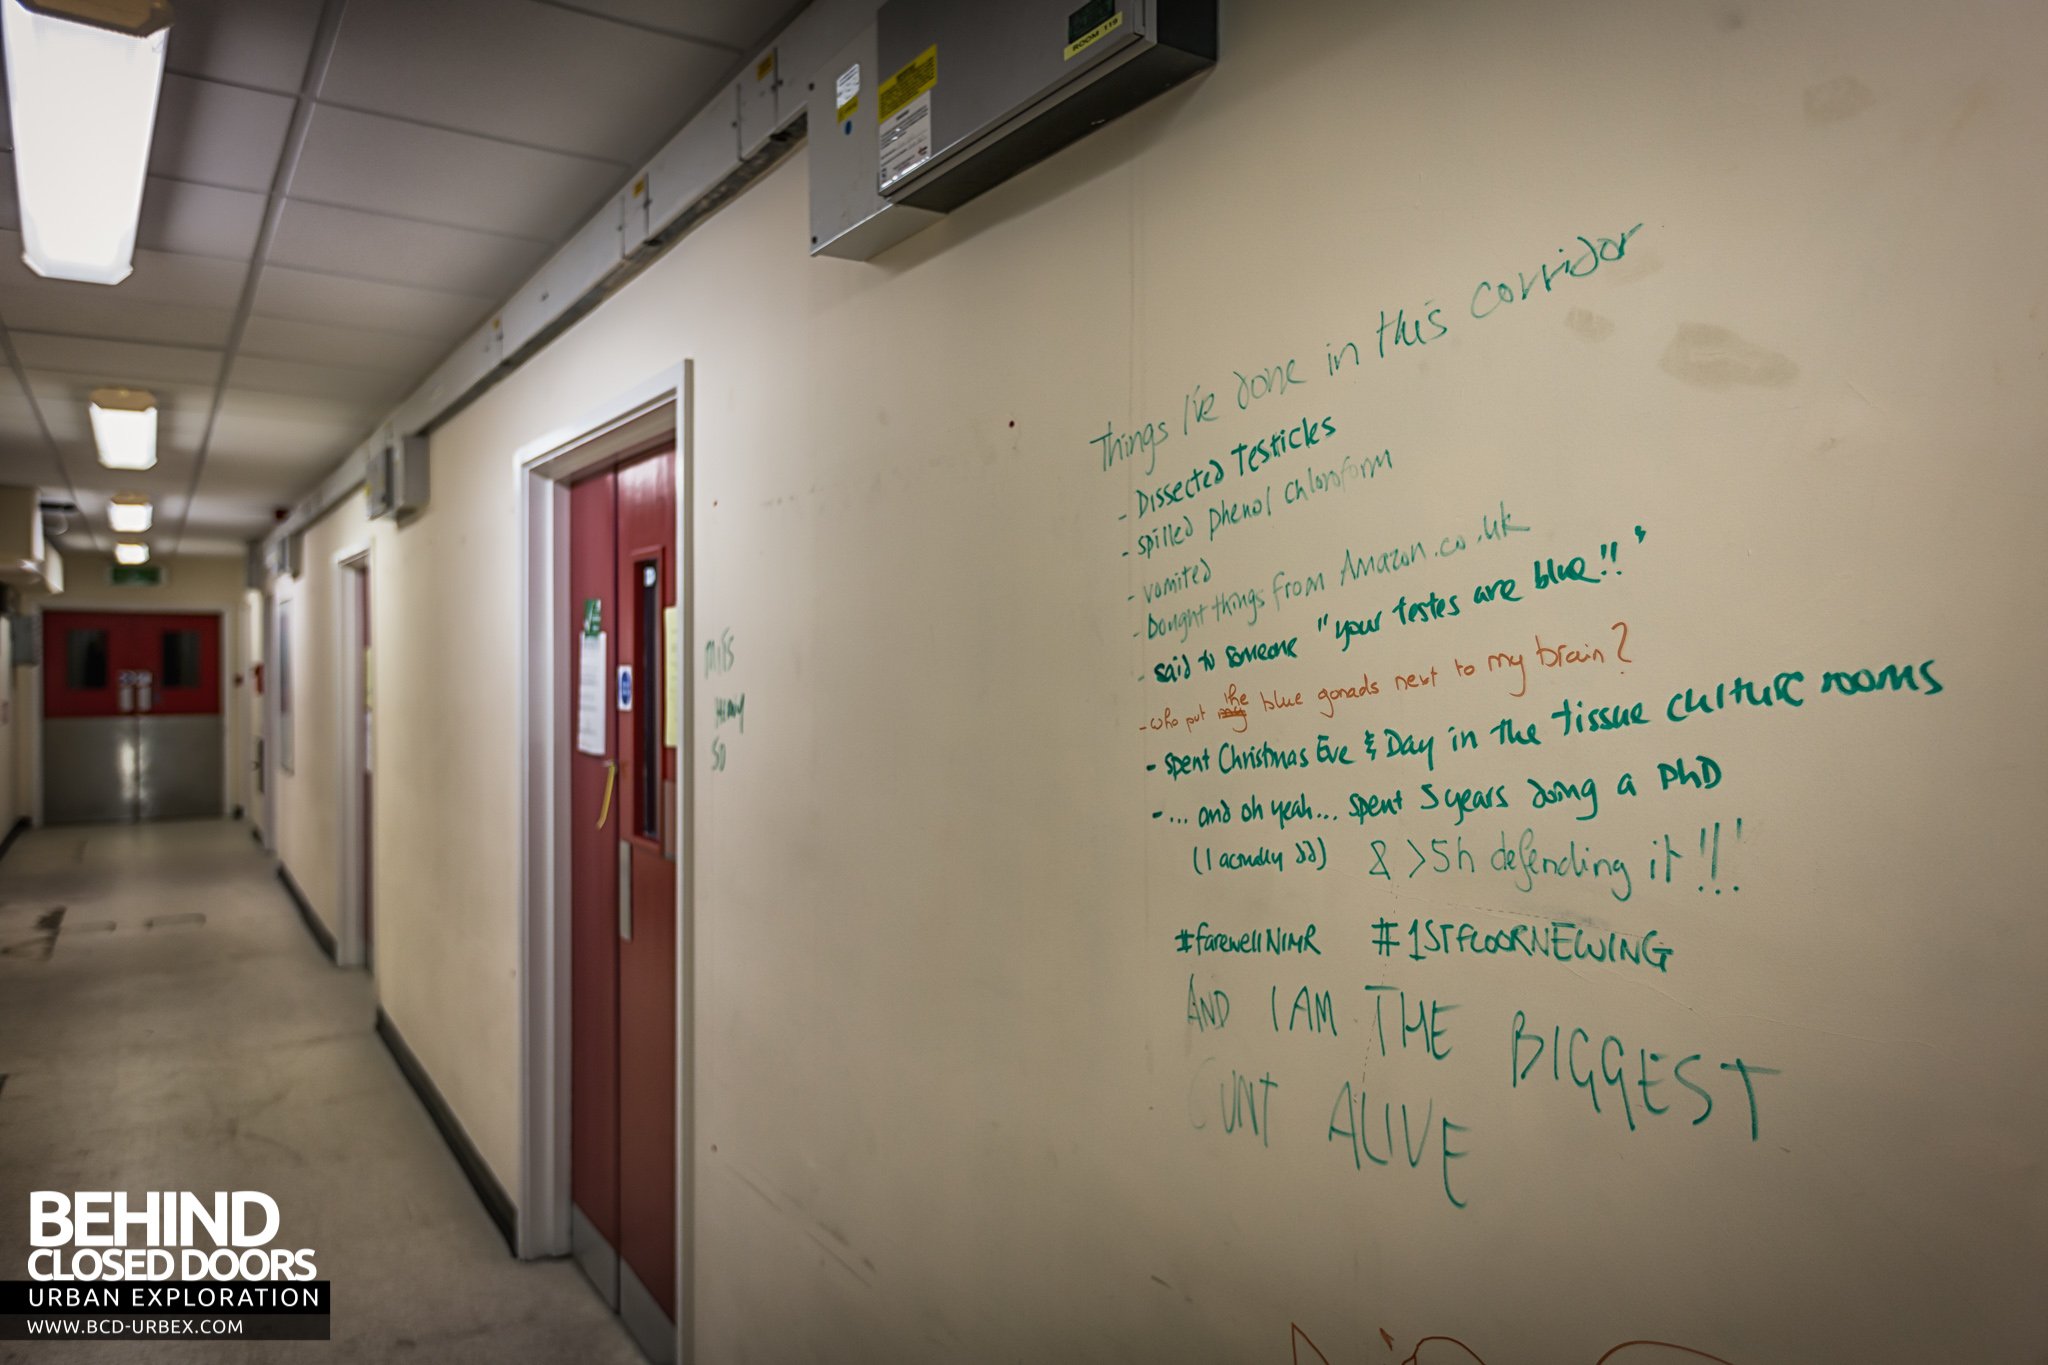 ROOM 119
Things I've done in this corridor
- Dissected Testicles
- spilled phenol chloroform
- vomited
- bought things from Amazon.co.uk
- said to someone "your testes are blue!!"
- who put the blue gonads next to my brain?
- spent Christmas Eve & Day in the tissue culture rooms
- ... and oh yeah... spent 5 years doing a PhD
(I actually did) & >5h defending it!!!
#farewellNIMR #1STFLOORNEWING
AND I AM THE BIGGEST
CUNT ALIVE
BEHIND
CLOSED DOORS
URBAN EXPLORATION
WWW.BCD-URBEX.COM